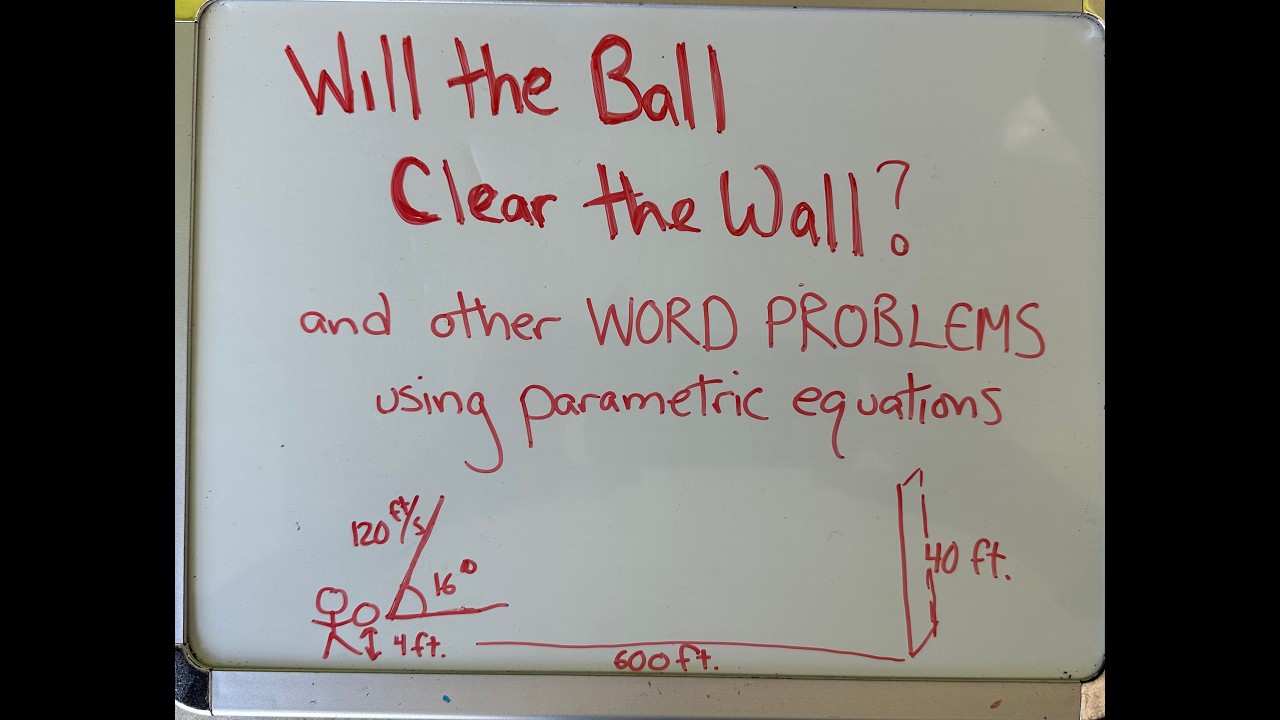 Will the Ball
Clear the Wall?
and other WORD PROBLEMS
using parametric equations
120 ft/s
16°
40 ft.
4 ft.
600 ft.